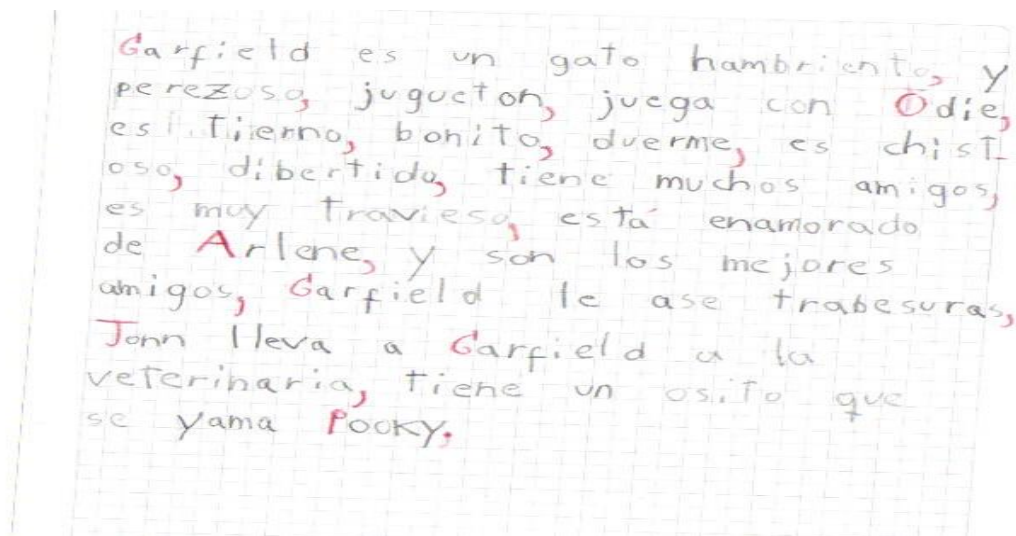 Garfield es un gato hambriento, y
perezoso, jugueton, juega con Odie,
es tierno, bonito, duerme, es chist-
oso, dibertido, tiene muchos amigos,
es muy travieso, está enamorado
de Arlene, y son los mejores
amigos, Garfield le ase trabesuras,
Jonn lleva a Garfield a la
veterinaria, tiene un osito que
se yama Pooky.